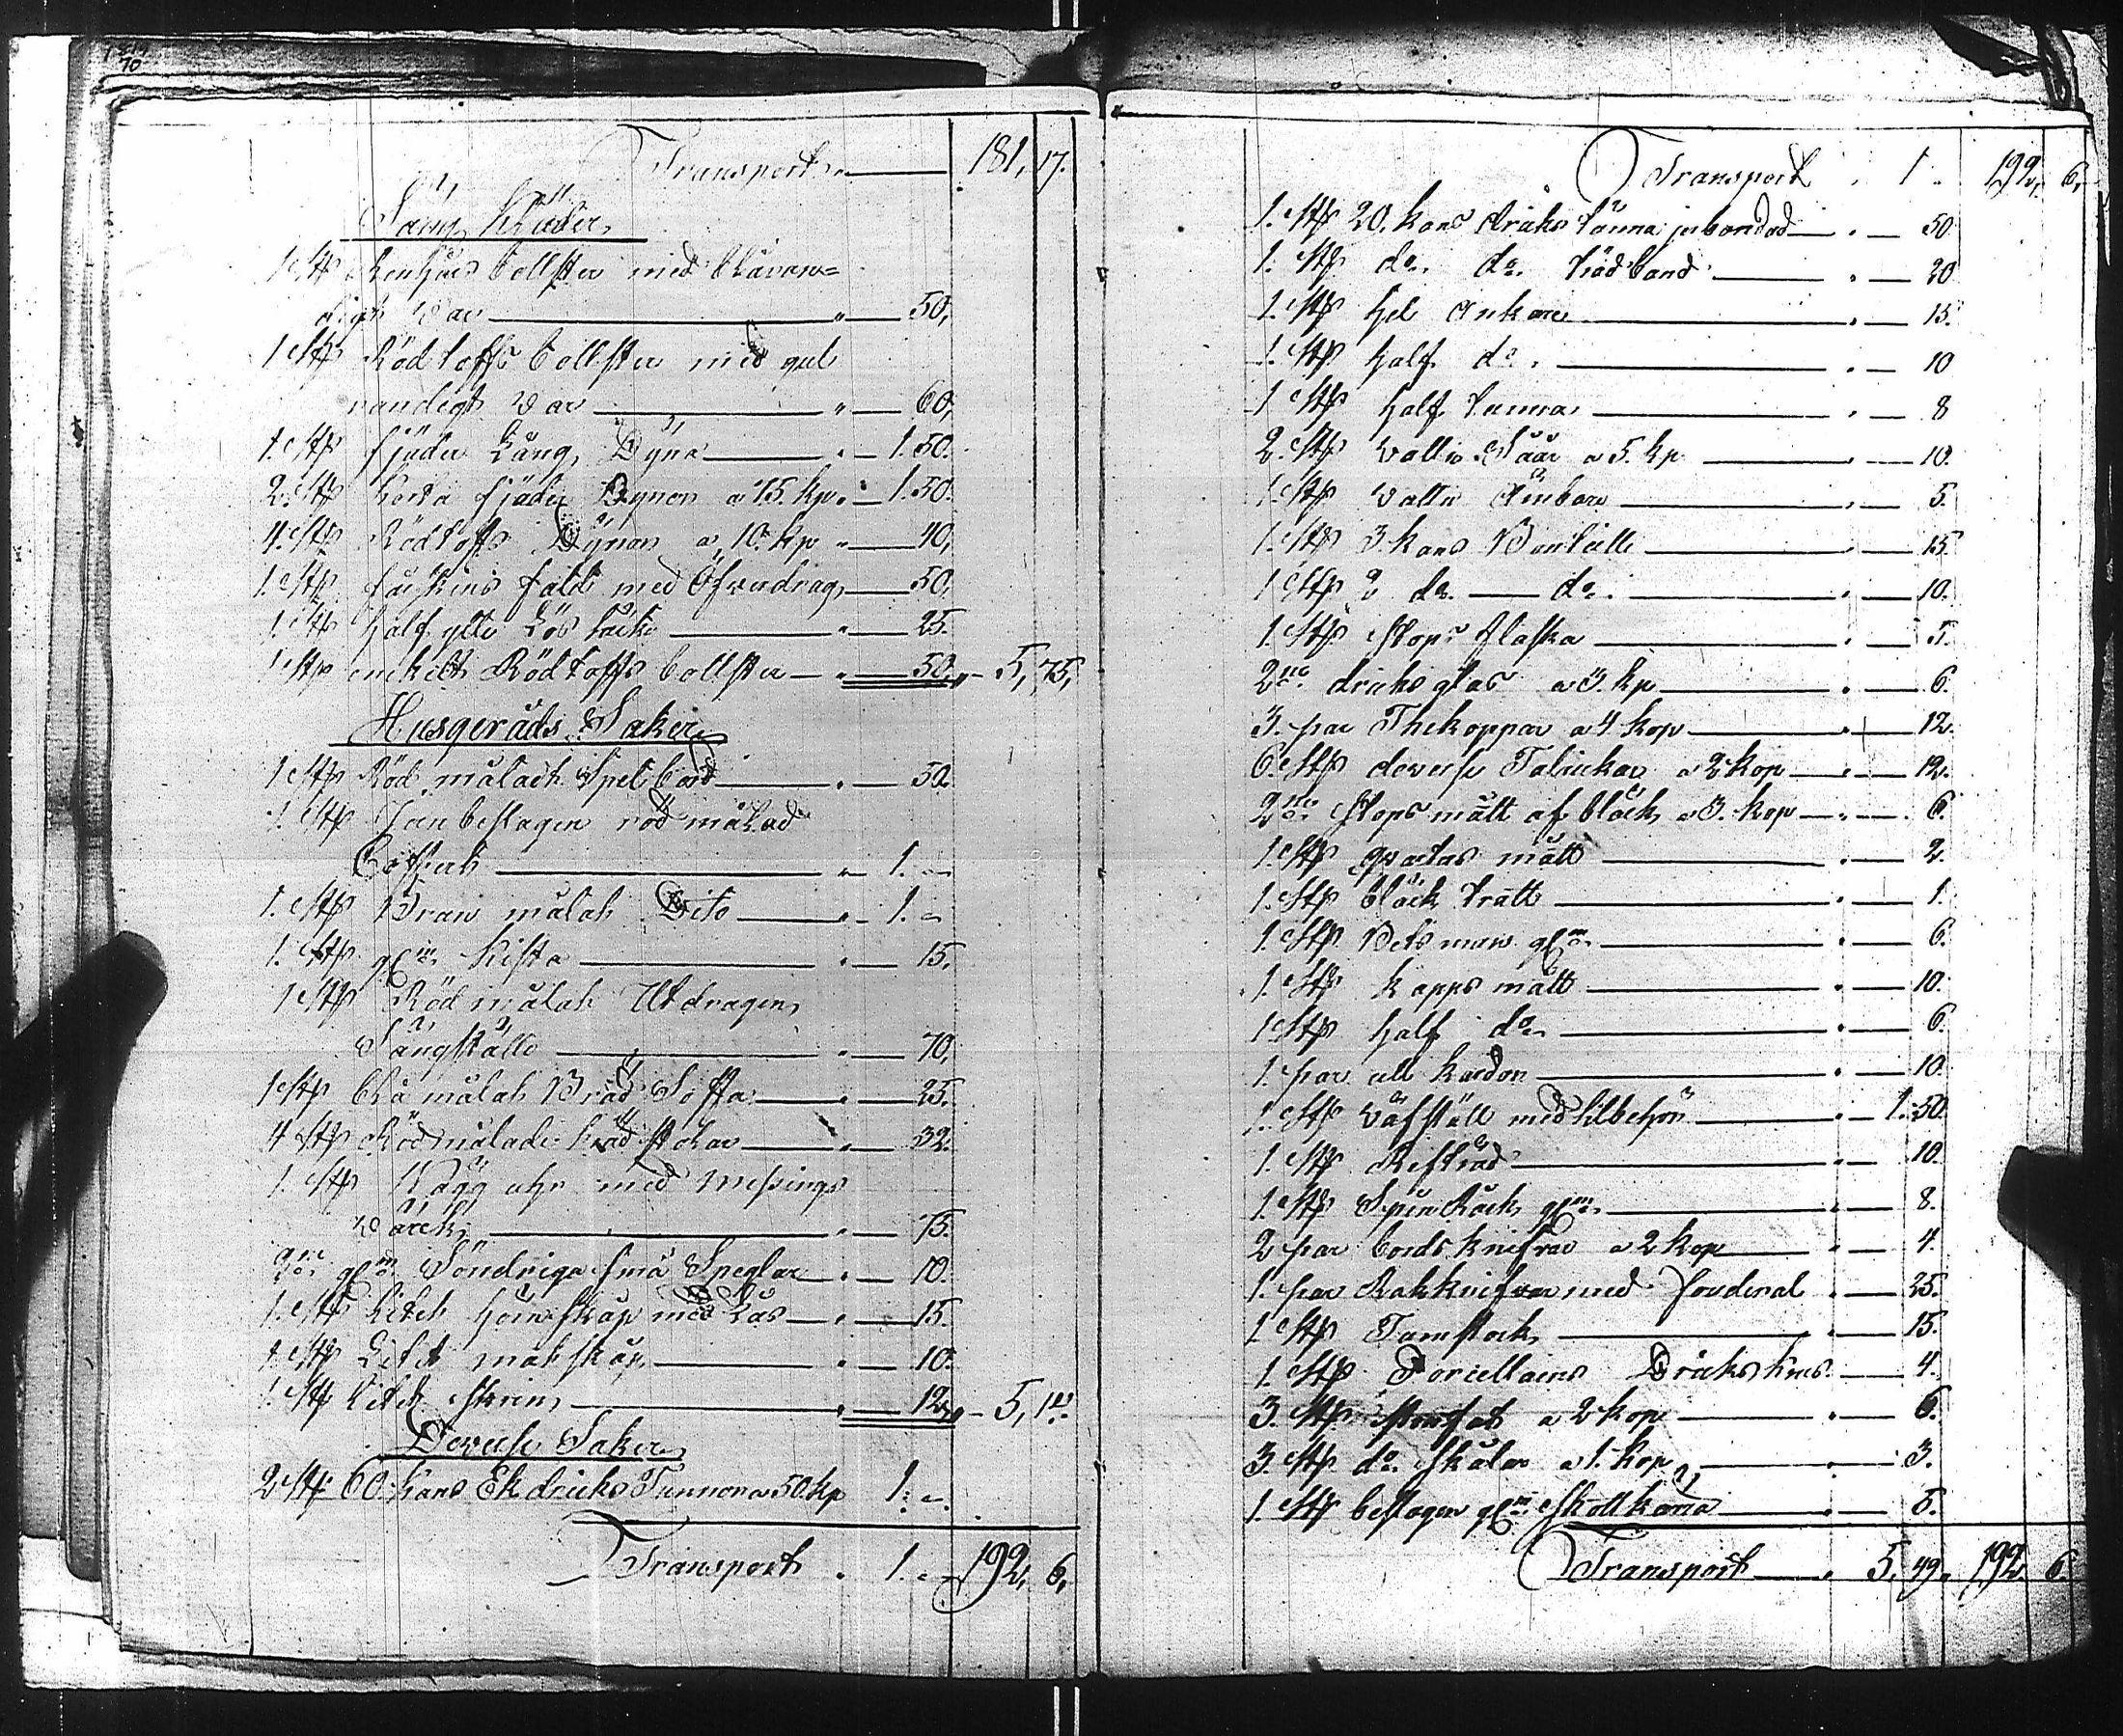 Transport 181, 17.
Säng Kläder,
1 Stk Renhårs bollster med blåran=
digt war " 50,
1 Stk Rödtoffs bollster med gul
randigt war " 60,
1. Stk fjäder Lång Dyna " 1.50.
2. Stk korta fjäder Dynor a 75. kp. " 1.50.
4. Stk Rödtoffs Dynor a, 10. kp " 40,
1. Stk fårskins fäld med Öfverdrag 50,
1. Stk half ylle Lös täcke " 25.
1 Stk enkelt Rödtoffs bollster " 50. " 5, 75,
Husgeråds Saker
1 Stk Röd måladt Spel bord " 50.
1. Stk Jern beslagen röd målad
Coffert " 1. "
1. Stk Brun målat Dito " 1. "
1. Stk glm Kista " 15,
1 Stk Röd målat Utdragen,
Sängställe " 70,
1 Stk blå målat Bräd Soffa " 25.
4 Stk Rödmålade bräd stolar " 32.
1. Stk Vägg uhr med messings
värck " 75.
2ne glm Söndriga små Speglar " 10.
1. Stk Litet hörnskåp med Lås " 15.
1. Stk Litet matskåp " 10.
1. Stk Litet skrin, " 12, " 5, 14.
Deverse Saker
2 Stk 60. Kans Ek dricks Tunnor a 50. kp 1. "
Transport " 1. " 192, 6,
Transport " 1 " 192, 6,
1. Stk 20. kans dricks tunna jernbandad " 50
1. Stk do. do. trädband " 20
1. Stk hel Ankare " 15.
1. Stk half do. " 10
1 Stk half tunna " 8
2. Stk vatten Såar a 5. kp " 10.
1. Stk vatten Ämbare " 5.
1. Stk 3 kans Bouteille " 15.
1 Stk 2 do. do. " 10.
1. Stk Stops flaska " 5.
2ne dricks glas a 3. kp " 6.
3. par Thekoppar a 4. kop " 12.
6. Stk deverse Talrickar a 2 kop " 12.
2ne Stops mått af bläck a 3. kop " 6.
1. Stk qvarters mått " 2.
1. Stk bläck tratt " 1.
1. Stk Betsman glm " 6.
1. Stk kapps mått " 10.
1 Stk half do " 6.
1. par ull kardor " 10
1. Stk väfställ med tilbehör " 1.50.
1. Stk Refträd " 10.
1 Stk Spin Råck glm " 8.
2 par bords knifvar a 2 kop " 4.
1. par Rakknifvar med fouderal " 25.
1 Stk Tumstock " 15.
1. Stk Porcellains Dricks krus " 4.
3. Stk stenfat a 2 kop " 6.
3. Stk do. skålar a 1. kop " 3.
1 Stk beslagen glm Skottkärra " 5.
Transport " 5, 49. 192. 6.